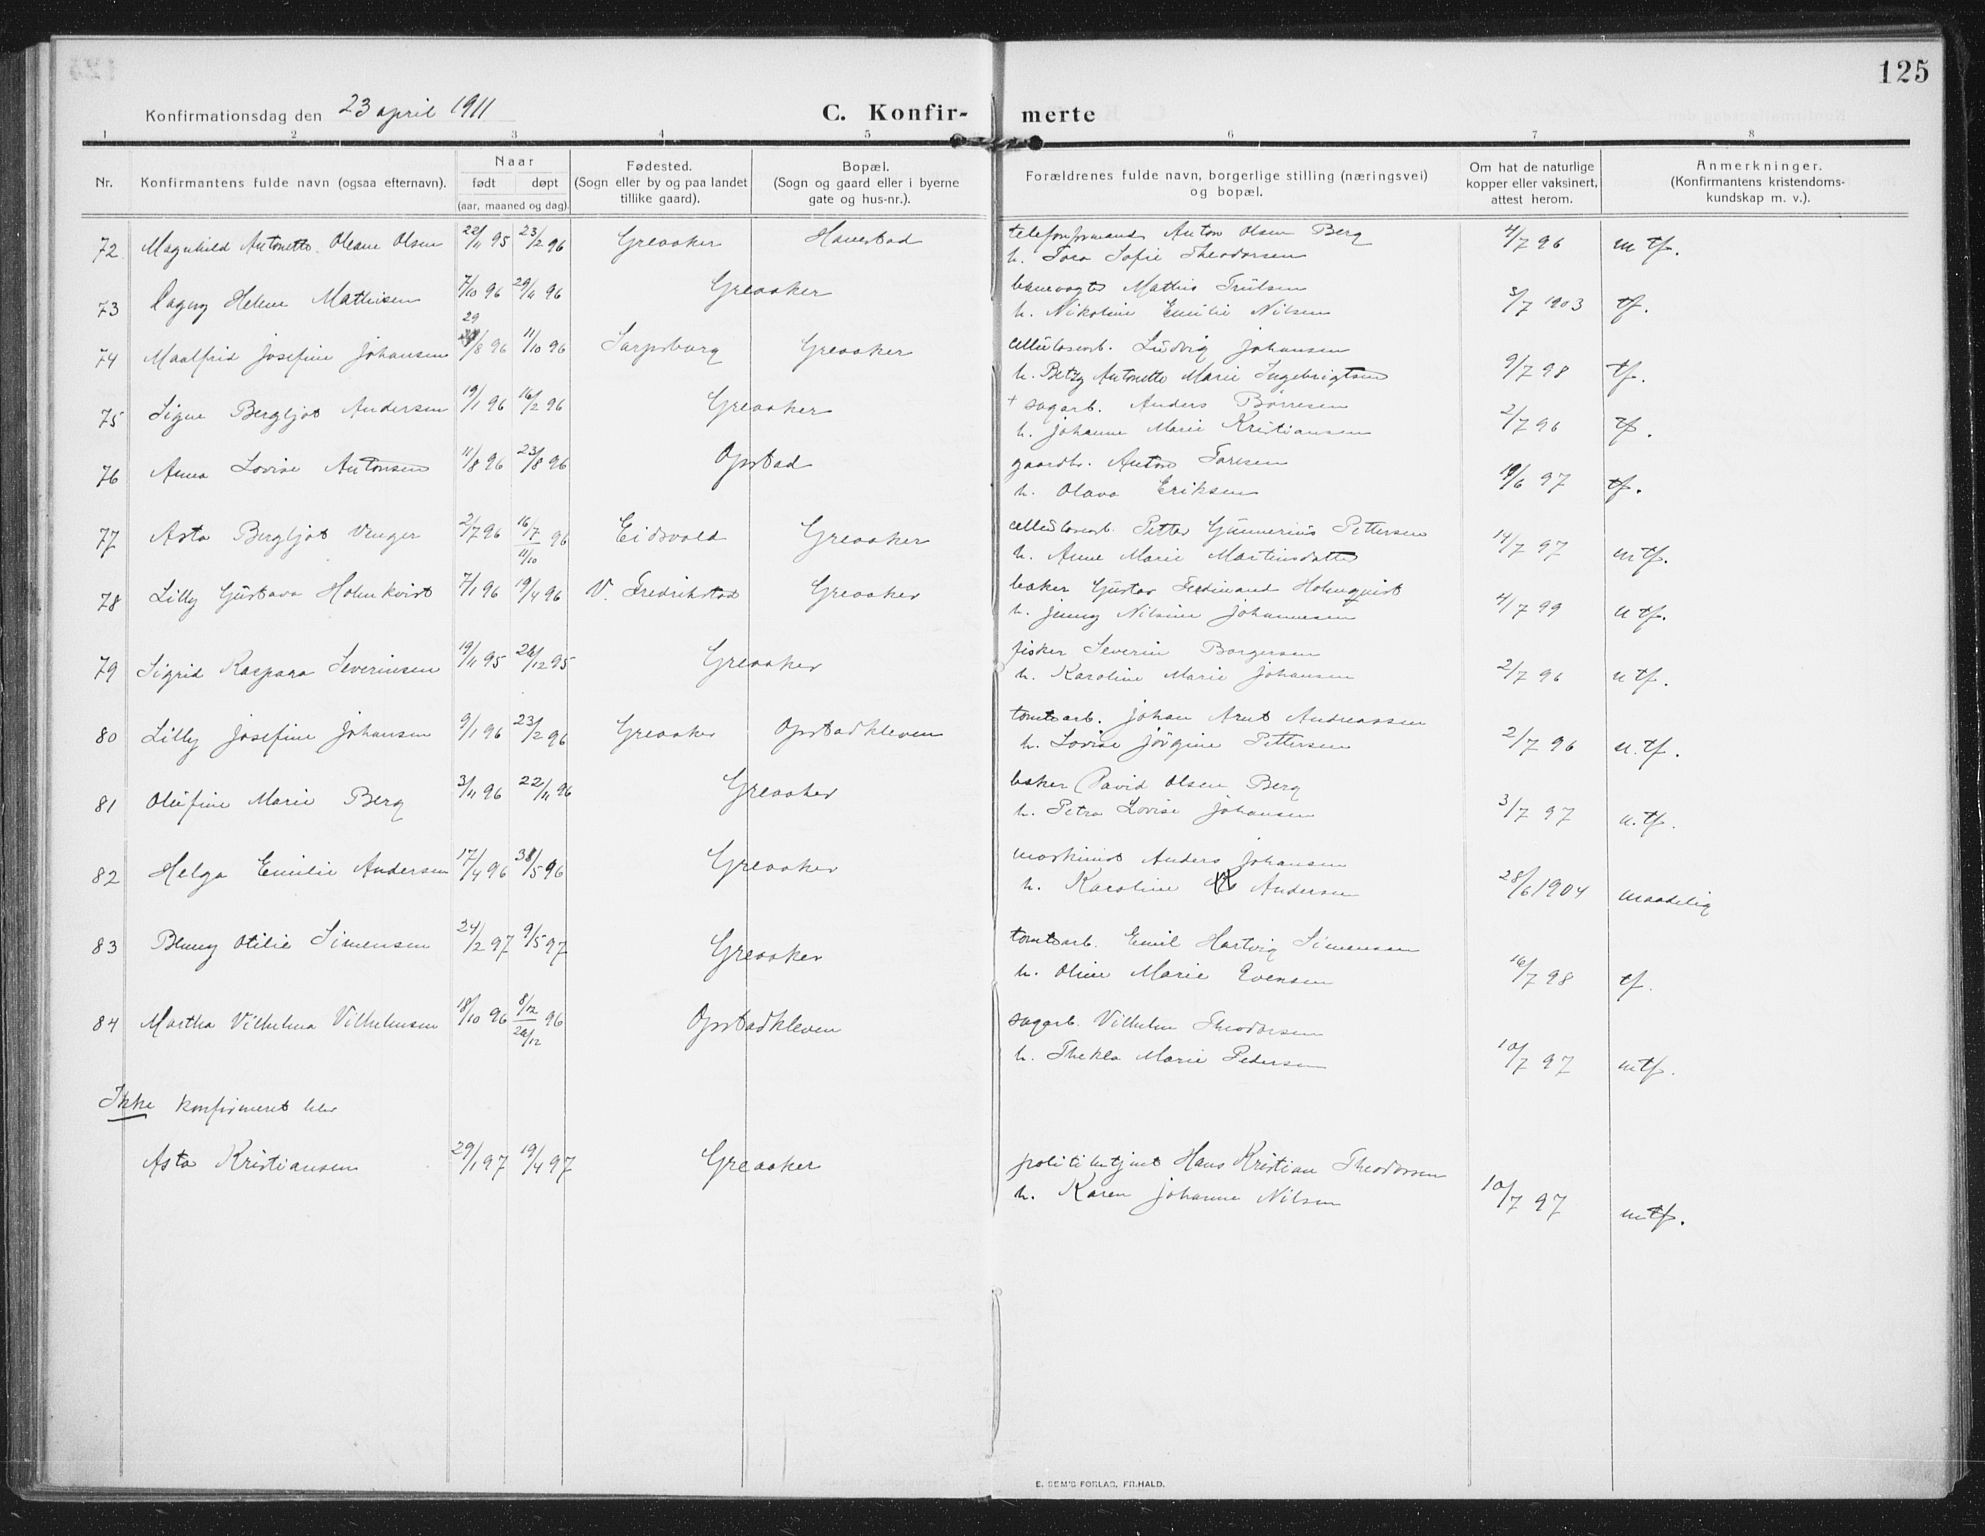 125
Konfirmationsdag den 23 april 1911
C. Konfir- merte
1 2 3 4 5 6 7 8
Nr. Konfirmantens fulde navn (ogsaa efternavn). Naar født døpt (aar, maaned og dag). Fødested. (Sogn eller by og paa landet tillike gaard). Bopæl. (Sogn og gaard eller i byerne gate og hus-nr.). Forældrenes fulde navn, borgerlige stilling (næringsvei) og bopæl. Om hat de naturlige kopper eller vaksinert, attest herom. Anmerkninger. (Konfirmantens kristendoms-kundskap m. v.).
72 Magnhild Antonette Oleane Olsen 22/11 95 23/2 96 Greaaker Hanestad telefonformand Anton Olsen Berg 4/7 96 m tf.
h. Tora Sofie Theodorsen
73 Dagny Helene Mathisen 7/10 96 29/11 96 Greaaker banevogter Mathis Trulsen 3/7 1903 tf.
h. Nikoline Emilie Nilsen
74 Maalfrid Josefine Johansen 29/8 96 11/10 96 Sarpsborg Greaaker cellulosearb. Ludvig Johansen 9/7 98 tf.
h. Betzy Antonette Marie Ingebrigtsen
75 Signe Bergljot Andersen 19/1 96 16/2 96 Greaaker + sagarb. Anders Børresen 2/7 96 tf.
h. Johanne Marie Kristiansen
76 Anna Lovise Antonsen 11/8 96 23/8 96 Opstad gaardbr. Anton Toresen 19/6 97 tf.
h. Olava Eriksen
77 Asta Bergljot Venger 2/7 96 16/7 11/10 96 Eidsvold Greaaker cellulosearb. Petter Gunnerius Pettersen 14/7 97 mtf.
h. Anne Marie Martinsdatter
78 Lilly Gustava Holmkvist 7/1 96 19/4 96 V. Fredrikstad Greaaker baker Gustav Ferdinand Holmquist 4/7 99 m tf.
h. Jenny Nilsine Johannesen
79 Sigrid Kaspara Severinsen 19/11 95 26/12 95 Greaaker fisker Severin Borgersen 2/7 96 m tf.
h. Karoline Marie Johansen
80 Lilly Josefine Johansen 9/1 96 23/2 96 Greaaker Opstadkleven tomtearb. Johan Arnt Andreassen 2/7 96 m. tf.
h. Lovise Jørgine Pettersen
81 Olufine Marie Berg 3/11 96 22/11 96 Greaaker baker David Olsen Berg 3/7 97 m. tf.
h. Petra Lovise Johansen
82 Helga Emilie Andersen 17/4 96 31/5 96 Greaaker maskinist Anders Johansen 28/6 1904 maadelig
h. Karoline Andersen
83 Benny Otilie Simensen 24/2 97 9/5 97 Greaaker tomtearb. Emil Hartvig Simensen 16/7 98 tf.
h. Oline Marie Evensen
84 Martha Vilhelma Vilhelmsen 18/10 96 8/12 26/12 96 Opstadkleven sagarb. Vilhelm Theodorsen 10/7 97 mtf.
h. Thekla Marie Pedersen
Ikke konfirmeret blev
Asta Kristiansen 29/1 97 19/4 97 Greaaker politibetjent Hans Kristian Theodorsen 10/7 97 mtf.
h. Karen Johanne Nilsen
E. SEM'S FORLAG, FR.HALD.